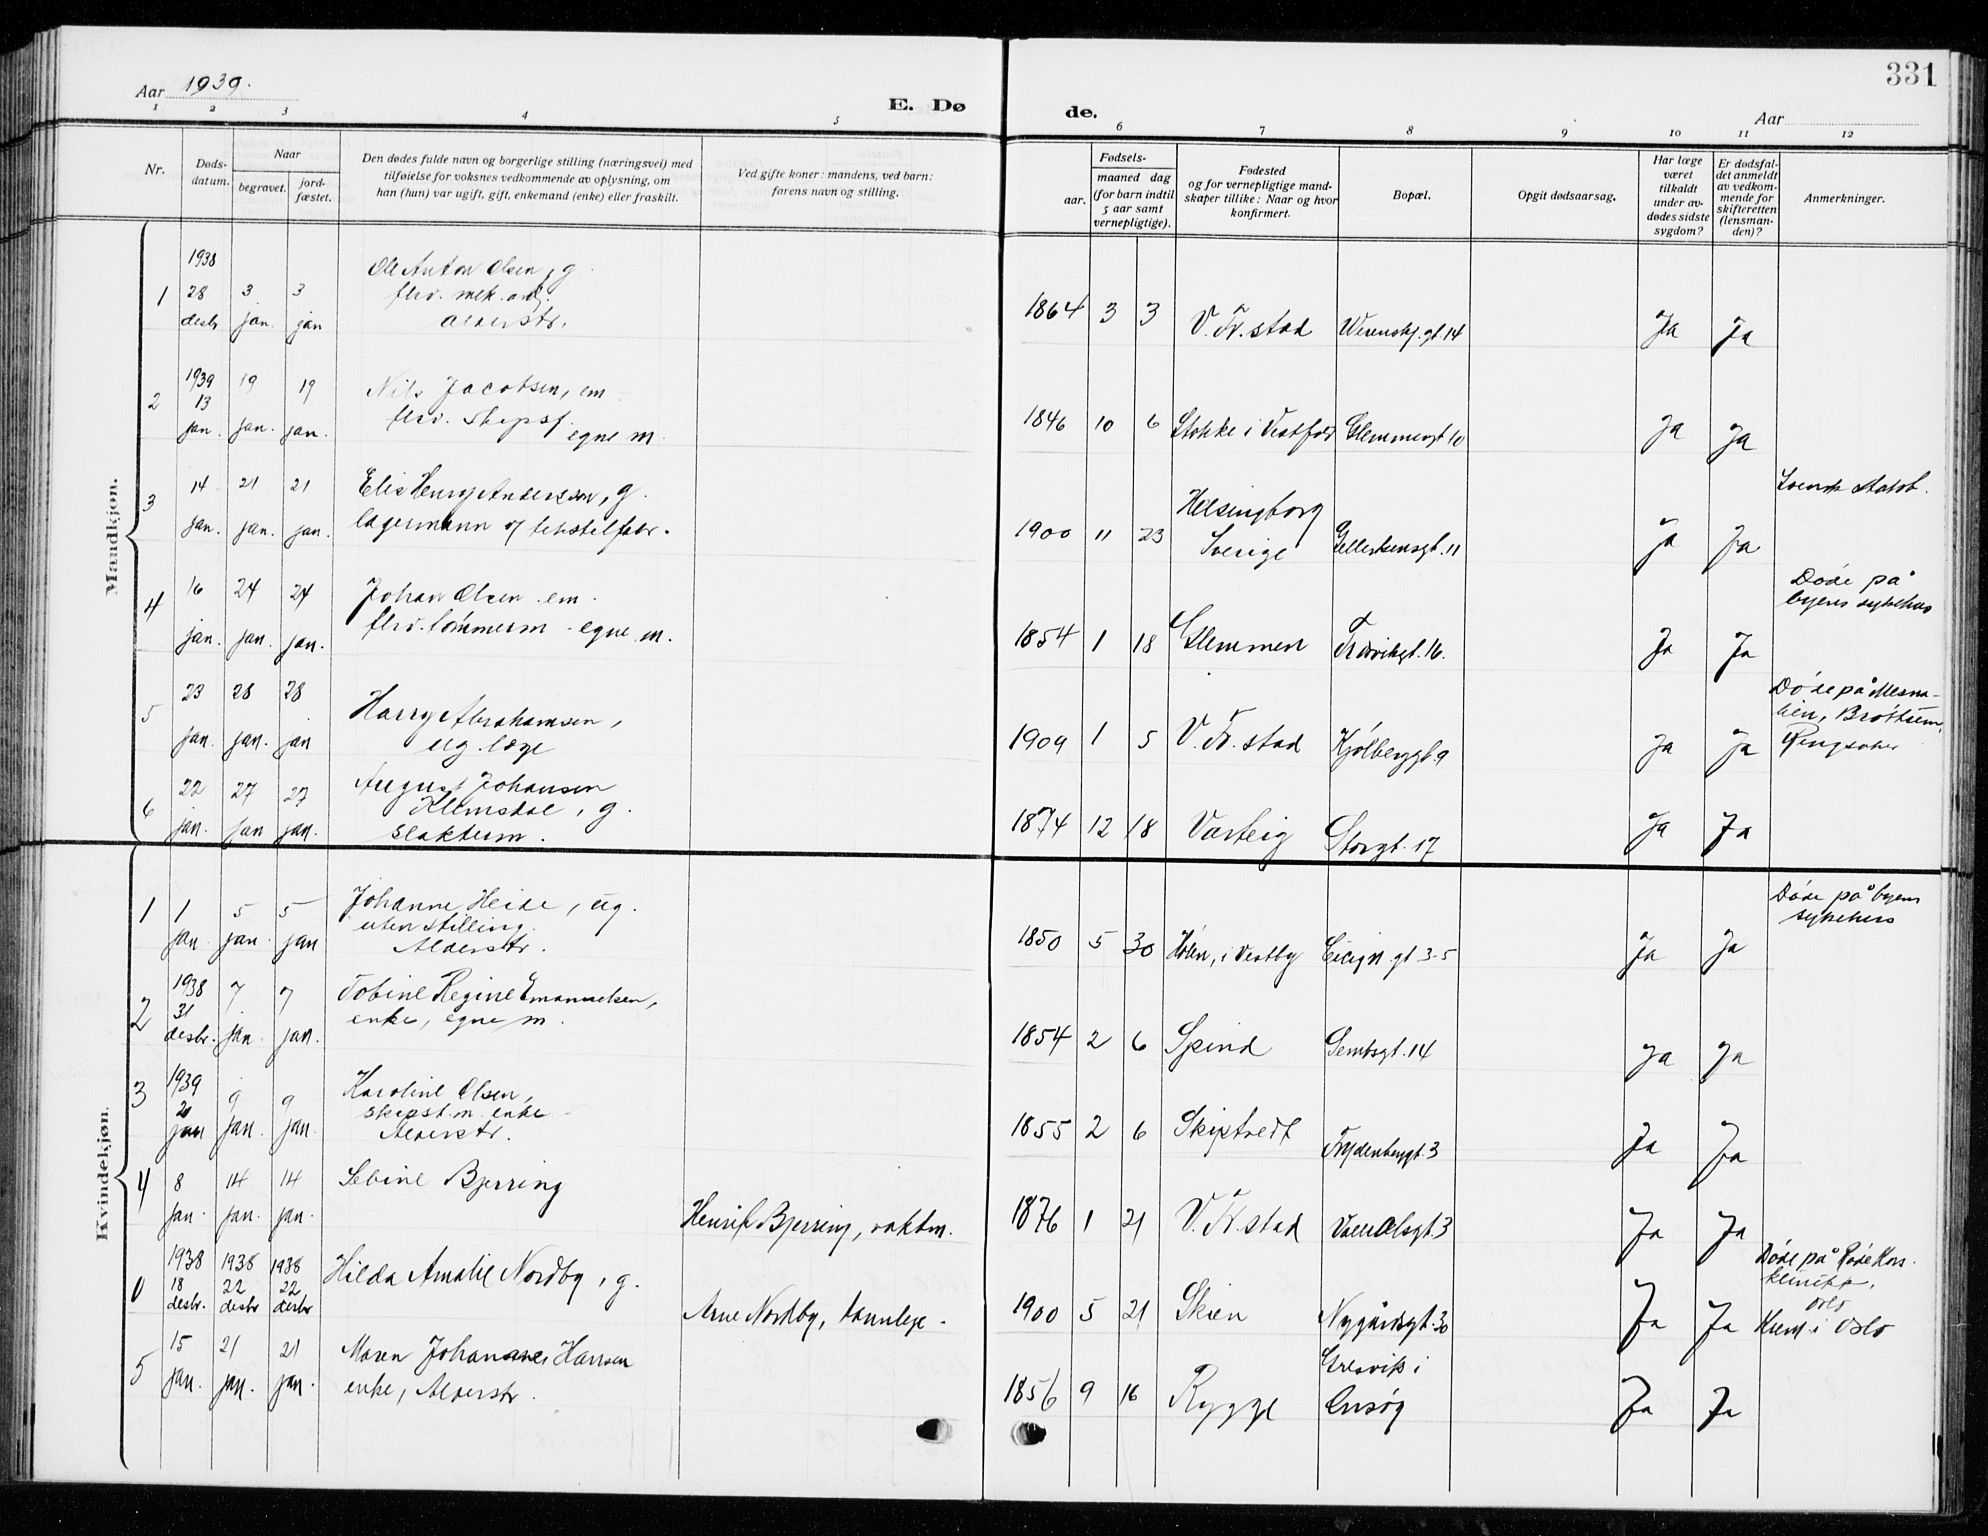 331
Aar 1939.
E. Dø
de.
Aar
1 2 3 4 5 6 7 8 9 10 11 12
Nr.
Døds-
datum.
Naar
begravet.
jord-
fæstet.
Den dødes fulde navn og borgerlige stilling (næringsvei) med
tilføielse for voksnes vedkommende av oplysning, om
han (hun) var ugift, gift, enkemand (enke) eller fraskilt.
Ved gifte koner: mandens, ved barn:
farens navn og stilling.
Fødsels-
aar.
maaned dag
(for barn indtil
5 aar samt
vernepligtige).
Fødested
og for vernepligtige mand-
skaper tillike: Naar og hvor
konfirmert.
Bopæl.
Opgit dødsaarsag.
Har læge
været
tilkaldt
under av-
dødes sidste
sygdom?
Er dødsfal-
det anmeldt
av vedkom-
mende for
skifteretten
(lensman-
den)?
Anmerkninger.
Mandkjøn.
1 1938 28 desbr 3 jan. 3 jan
Ole Anton Olsen, g.
fhv. mek. arb.
alderstr.
1864 3 3 V. Fr.stad Werenskj.gt. 14 Ja Ja
2 1939 13 jan. 19 jan. 19 jan.
Nils Jacobsen, em
fhv. Skipsf.
egne m.
1846 10 6 Stokke i Vestfold Glemmengt 10 Ja Ja
3 14 jan. 21 jan. 21 jan.
Elis Henry Andersson, g.
lagermann v/ tekstilfabr.
1900 11 23 Helsingborg
Sverige Gellertsensgt. 11 Ja Ja
Svensk statsb.
4 16 jan. 24 jan. 24 jan.
Johan Olsen em.
fhv. tømmerm - egne m.
1854 1 18 Glemmen Trosvikgt. 16. Ja Ja
Døde på
byens sykehus
5 23 jan. 28 jan. 28 jan
Harry Abrahamsen,
ug. læge
1909 1 5 V. Fr. stad Kjølberggt. 9 Ja Ja
Døde på Mesna-
lien, Brøttum,
Ringsaker
6 22 jan. 27 jan 27 jan.
August Johansen
Klemsdal, g.
slakterm.
1874 12 18 Varteig Storgt. 17 Ja Ja
Kvindekjøn.
1 1 jan. 5 jan. 5 jan
Johanne Heide, ug.
uten stilling.
Alderstr.
1850 5 30 Hølen, i Vestby Cicign gt 3-5 Ja Ja
Døde på byens
sykehus
2 1938 31 desbr. 7 jan. 7 jan.
Tobine Regine Emanuelsen,
enke, egne m.
1854 2 6 Spind Sembsgt. 14 Ja Ja
3 1939 2 jan 9 jan. 9 jan.
Karoline Olsen,
skipst.m. enke
Alderstr.
1855 2 6 Skiptvedt Frydenberggt. 3 Ja Ja
4 8 jan. 14 jan. 14 jan.
Sebine Bjerring
Henrik Bjerring, vaktm.
1876 1 21 V. Fr. stad Voldalsgt. 3 Ja Ja
0 1938 18 desbr. 1938 22 desbr 1938 22 desbr
Hilda Amalie Nordby, g.
Arne Nordby, tannlege.
1900 5 21 Skien Nygårdsgt. 30 Ja Ja
Døde på Røde Kors
klinikk,
Oslo
Krem. i Oslo
5 15 jan. 21 jan. 21 jan.
Maren Johannes Hansen
enke, Alderstr.
1856 9 16 Rygge Gresvik i
Onsøy Ja Ja